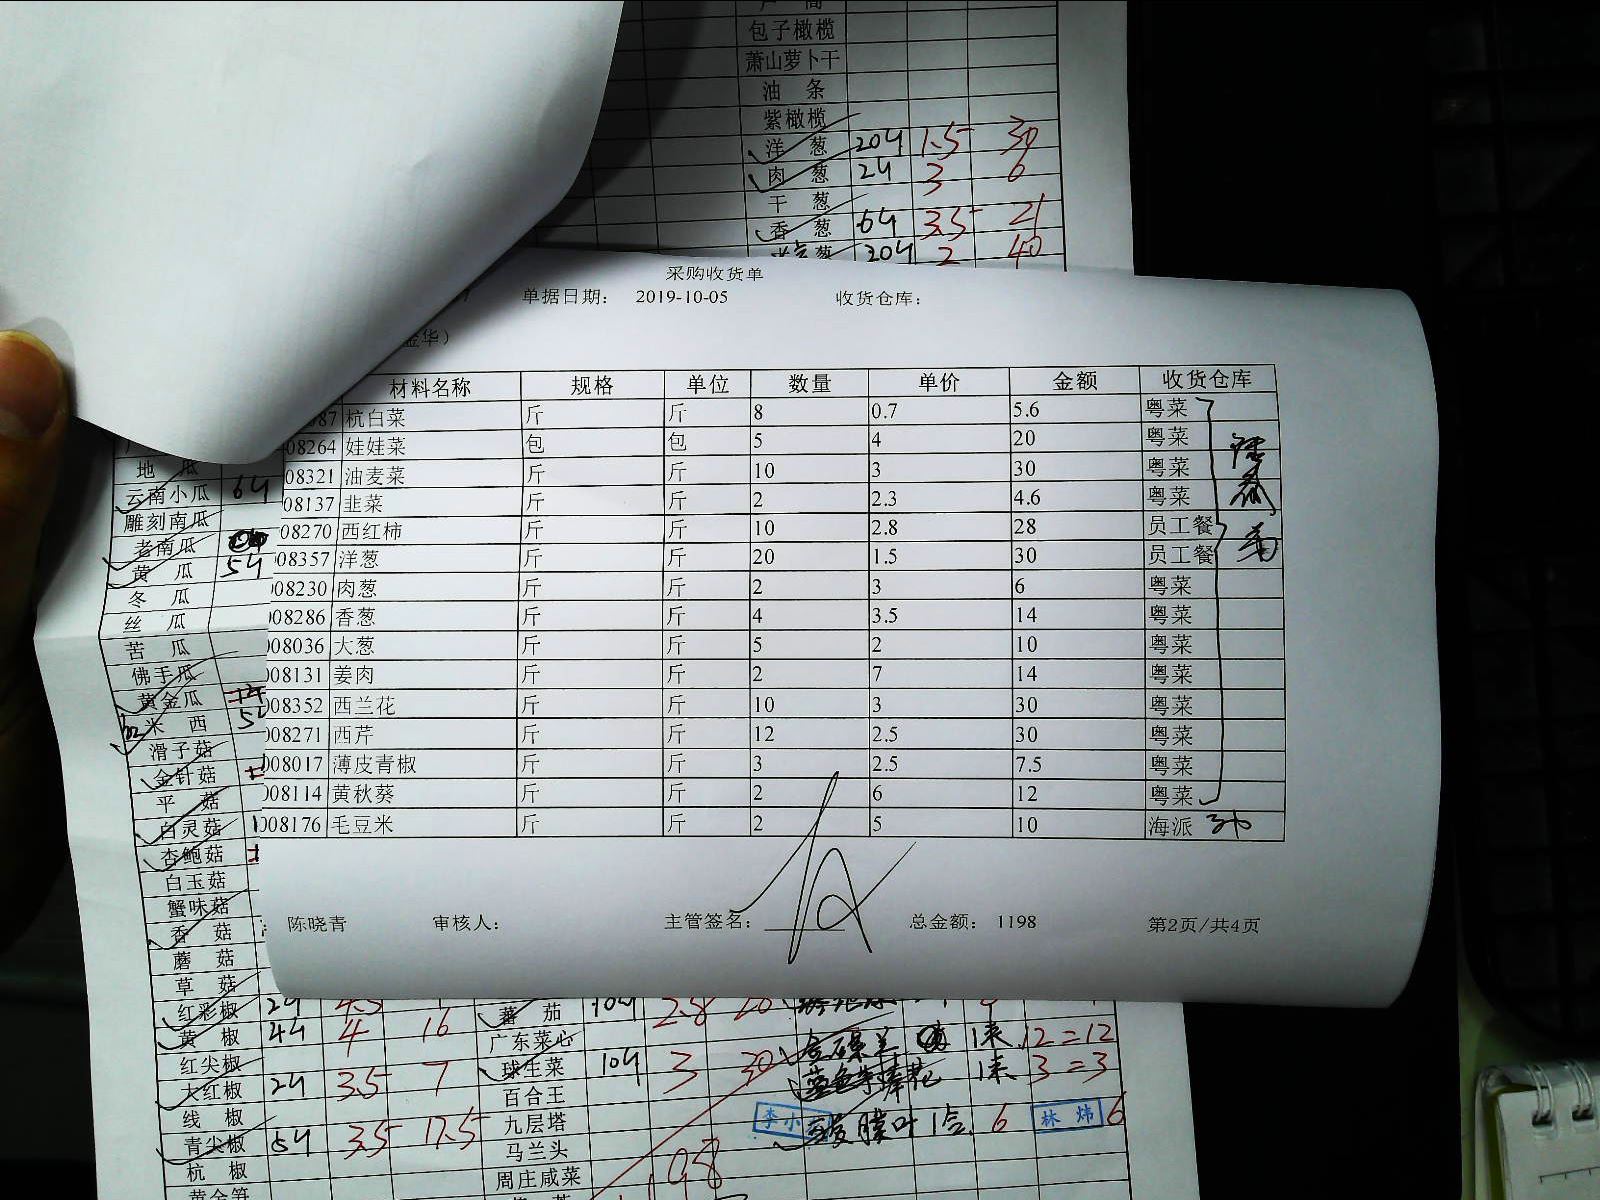 包子橄榄
萧山萝卜干
油 条
紫橄榄
洋 葱 20斤 1.5 30
肉 葱 2斤 3 6
干 葱
香 葱 6斤 3.5 21
葱 20斤 2 40
采购收货单
单据日期： 2019-10-05 收货仓库：
金华）
材料名称 规格 单位 数量 单价 金额 收货仓库
87 杭白菜 斤 斤 8 0.7 5.6 粤菜
08264 娃娃菜 包 包 5 4 20 粤菜
08321 油麦菜 斤 斤 10 3 30 粤菜
08137 韭菜 斤 斤 2 2.3 4.6 粤菜
08270 西红柿 斤 斤 10 2.8 28 员工餐
008357 洋葱 斤 斤 20 1.5 30 员工餐
008230 肉葱 斤 斤 2 3 6 粤菜
008286 香葱 斤 斤 4 3.5 14 粤菜
008036 大葱 斤 斤 5 2 10 粤菜
008131 姜肉 斤 斤 2 7 14 粤菜
008352 西兰花 斤 斤 10 3 30 粤菜
008271 西芹 斤 斤 12 2.5 30 粤菜
008017 薄皮青椒 斤 斤 3 2.5 7.5 粤菜
008114 黄秋葵 斤 斤 2 6 12 粤菜
008176 毛豆米 斤 斤 2 5 10 海派
陈晓青 审核人： 主管签名： 总金额： 1198 第2页/共4页
地 瓜
云南小瓜 6斤
雕刻南瓜
老南瓜
黄 瓜 5斤
冬 瓜
丝 瓜
苦 瓜
佛手瓜
黄金瓜
米 西 5
滑子菇
金针菇
平 菇
白灵菇
杏鲍菇
白玉菇
蟹味菇
香 菇
蘑 菇
草 菇
红彩椒 2斤 4.5 蕃 茄 10斤 2.8 28
黄 椒 4斤 4 16 广东菜心 1束 12=12
红尖椒 球生菜 10斤 3 30 1束 3=3
大红椒 2斤 3.5 7 百合王
线 椒 九层塔 李小 叶1盒 6 林炜 6
青尖椒 5斤 3.5 17.5 马兰头
杭 椒 周庄咸菜